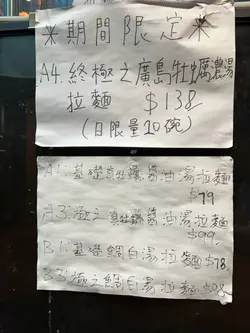 ※期間限定※
A4.終極之廣島牡蠣濃湯
拉麵 $138
(日限量10碗)
A1.基礎真牡蠣醬油湯拉麵
$79
A3.極之真牡蠣醬油湯拉麵
$99.
B1.基礎鯛白湯拉麵$78.
B3.極之鯛白湯拉麵$98